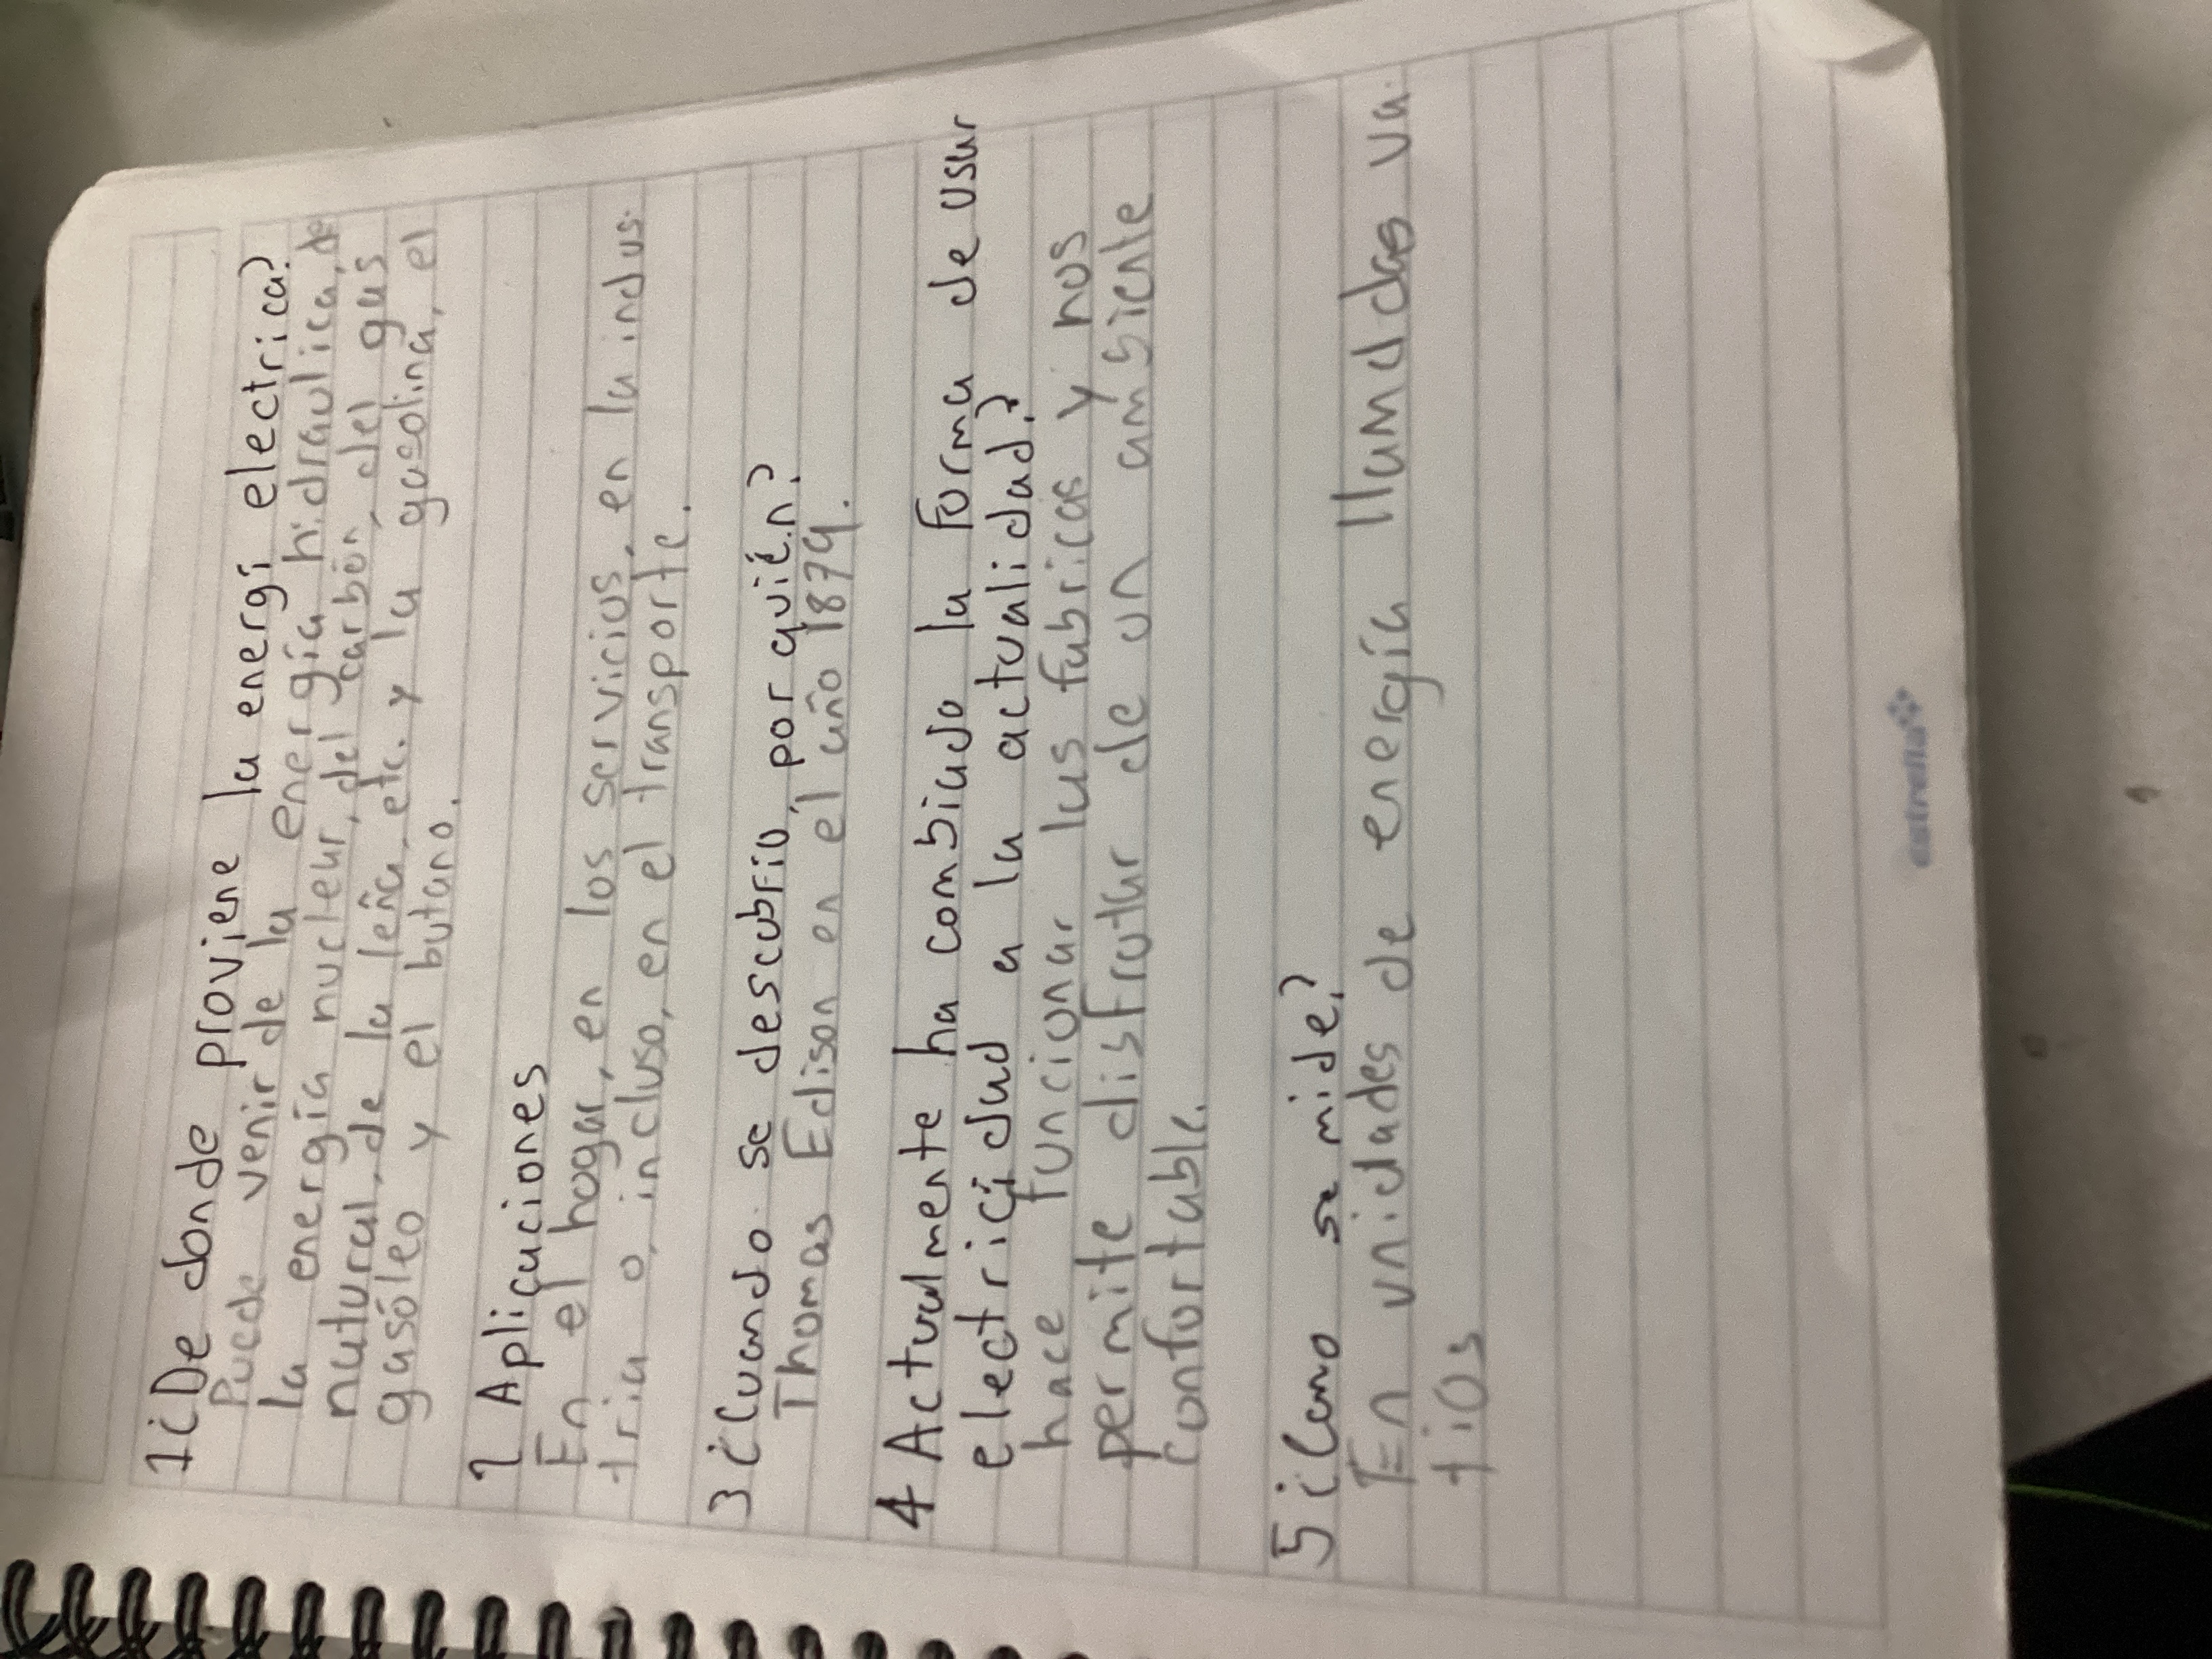 1 ¿De donde proviene la energí electrica?
Puede venir de la energía hidraulica, de
la energía nuclear, del carbón, del gas
natural, de la leña, etc. y la gasolina, el
gasóleo y el butano.
2 Aplicaciones
En el hogar, en los servicios, en la indus-
tria o, incluso, en el transporte.
3 ¿Cuando se descubrio, por quién?
Thomas Edison en el año 1879.
4 Actualmente ha combiado la forma de usar
electricidad a la actualidad?
hace funcionar las fabricas y nos
permite disfrutar de un ambiente
confortable.
5 ¿Como se mide?
En unidades de energía llamadas va-
tios
estrella